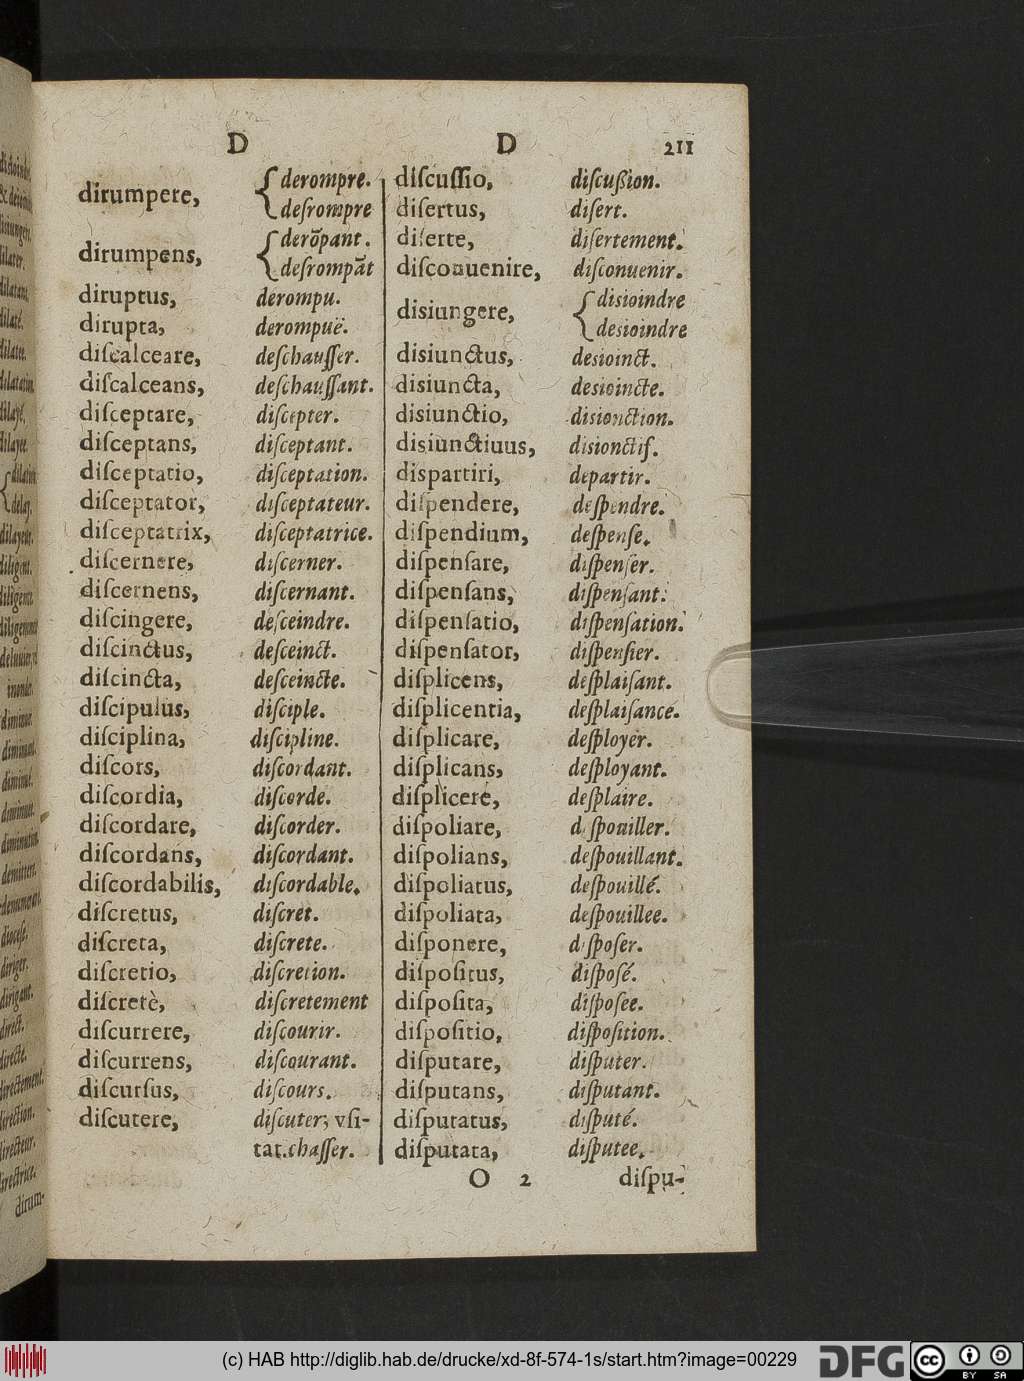 D D 211
dirumpere, { derompre.
deſrompre
dirumpens, { derõpant.
deſrompãt
diruptus, derompu.
dirupta, derompuë.
diſcalceare, deſchauſſer.
diſcalceans, deſchauſſant.
diſceptare, diſcepter.
diſceptans, diſceptant.
diſceptatio, diſceptation.
diſceptator, diſceptateur.
diſceptatrix, diſceptatrice.
diſcernere, diſcerner.
diſcernens, diſcernant.
diſcingere, deſceindre.
diſcinctus, deſceinct.
diſcincta, deſceincte.
diſcipulus, diſciple.
diſciplina, diſcipline.
diſcors, diſcordant.
diſcordia, diſcorde.
diſcordare, diſcorder.
diſcordans, diſcordant.
diſcordabilis, diſcordable.
diſcretus, diſcret.
diſcreta, diſcrete.
diſcretio, diſcretion.
diſcretè, diſcretement
diſcurrere, diſcourir.
diſcurrens, diſcourant.
diſcurſus, diſcours.
diſcutere, diſcuter, vſi-
tat. chaſſer.
diſcuſſio, diſcußion.
diſertus, diſert.
diſerte, diſertement.
diſconuenire, diſconuenir.
disiungere, { disioindre
desioindre
disiunctus, desioinct.
disiuncta, desioincte.
disiunctio, disionction.
disiunctiuus, disionctif.
dispartiri, departir.
diſpendere, deſpendre.
diſpendium, deſpenſe.
diſpenſare, diſpenſer.
diſpenſans, diſpenſant.
diſpenſatio, diſpenſation.
diſpenſator, diſpenſier.
diſplicens, deſplaiſant.
diſplicentia, deſplaiſance.
diſplicare, deſployer.
diſplicans, deſployant.
diſplicere, deſplaire.
diſpoliare, deſpouiller.
diſpolians, deſpouillant.
diſpoliatus, deſpouillé.
diſpoliata, deſpouillee.
diſponere, diſpoſer.
diſpoſitus, diſpoſé.
diſpoſita, diſpoſee.
diſpoſitio, diſpoſition.
diſputare, diſputer.
diſputans, diſputant.
diſputatus, diſputé.
diſputata, diſputee.
O 2 diſpu-
(c) HAB http://diglib.hab.de/drucke/xd-8f-574-1s/start.htm?image=00229
DFG
cc BY SA